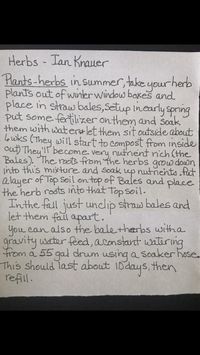 Herbs - Ian Knauer
Plants-herbs in summer, take your herb
Plants out of winter window boxes and
place in straw bales, setup in early spring
put some fertilizer on them and soak
them with water & let them sit outside about
6 wks (They will start to compost from inside
out) They'll become very nutrient rich (the
Bales). The roots from the herbs grow down
into this mixture and soak up nutrients. Put
a layer of Top soil on top of Bales and place
the herb roots into that Top soil.
In the fall just unclip straw bales and
let them fall apart.
You can also the bale + herbs with a
gravity water feed, a constant watering
from a 55 gal drum using a soaker hose.
This should last about 10 days, then
refill.